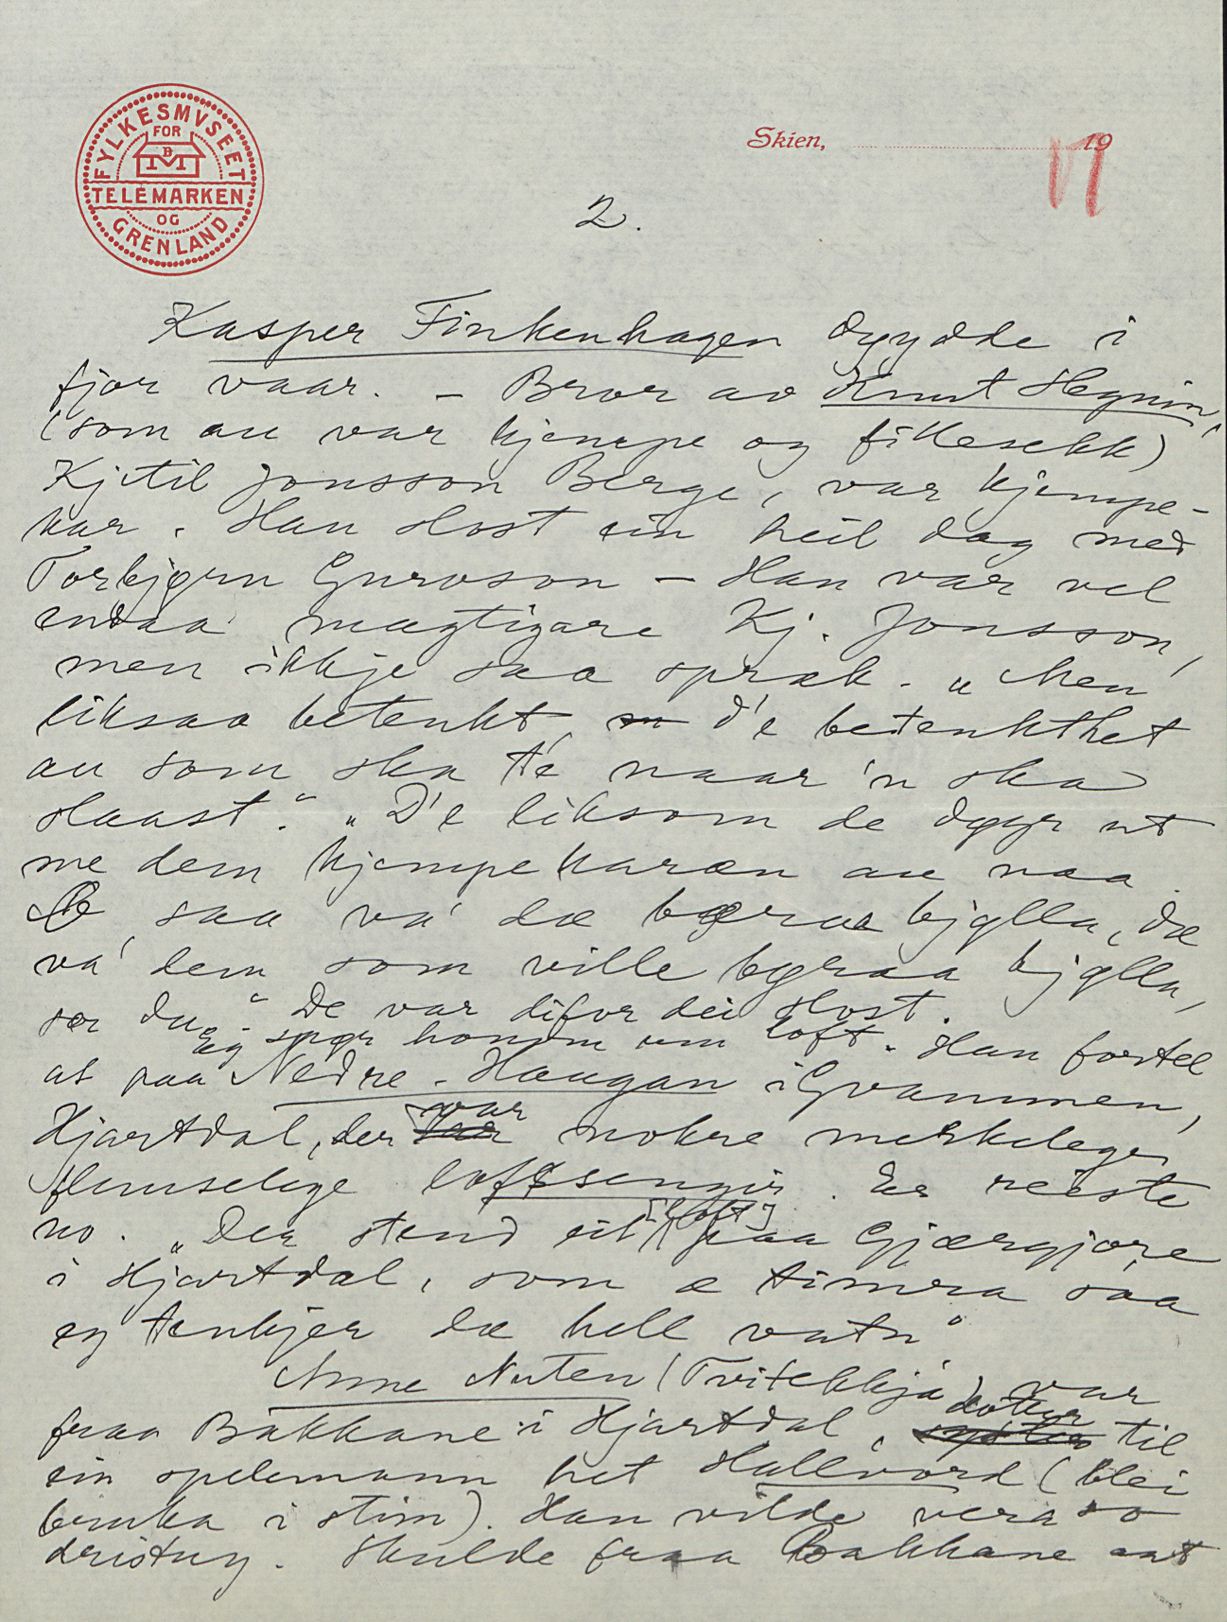 FYLKESMVSEET
FOR
BM
TELEMARKEN
OG
GRENLAND
Skien, 19
17
2.
Kasper Finkenhagen döydde i
fjor vaar. – Bror av Knut Hegnin,
(som au var kjempe og fillesekk)
Kjetil Jonsson Berge, var kjempe-
kar. Han slost ein heil dag med
Torbjørn Guroson – Han var vel
endaa magtigare Kj. Jonsson,
men ikkje saa spræk. „Men
liksaa betenkt, d'e betenkthet
au som ska te naar 'n ska
slaast." „D'e liksom de døyr ut
me dem kjempekaræn au naa.
O saa va' dæ børaa bjølla, dæ
va' dem som ville børaa bjølla,
ser du." De var difor dei slost.
Eg spør honom um loft. Han fortel
at paa Nedre-Haugan i Gvammen,
Hjartdal, der var nokre merkelege
flimselege loftsengir. Er reiste
no. „Der stend eit [loft] paa Gjærgjore
i Hjartdal, som æ timra saa
eg tenkjer dæ hell vatn"
Anne Nuten (Tvitekkja) var
fraa Bakkane i Hjartdal, dotter til
ein spelemann het Hallvord (blei
bruka i stim). Han vilde vera so
dristug. Skulde fraa Bakkane aat